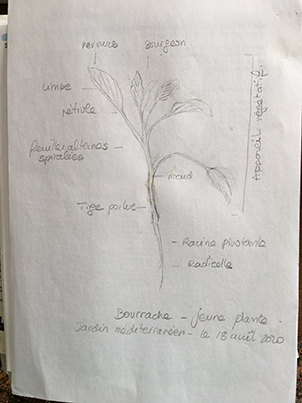 nervures
Bourgeon
Limbe
pétiole
feuilles alternes
spiralées
noeud
Tige poilue
Appareil végétatif
Racine pivotante
Radicelle
Bourrache - jeune plante.
Jardin méditerranéen - le 18 avril 2020